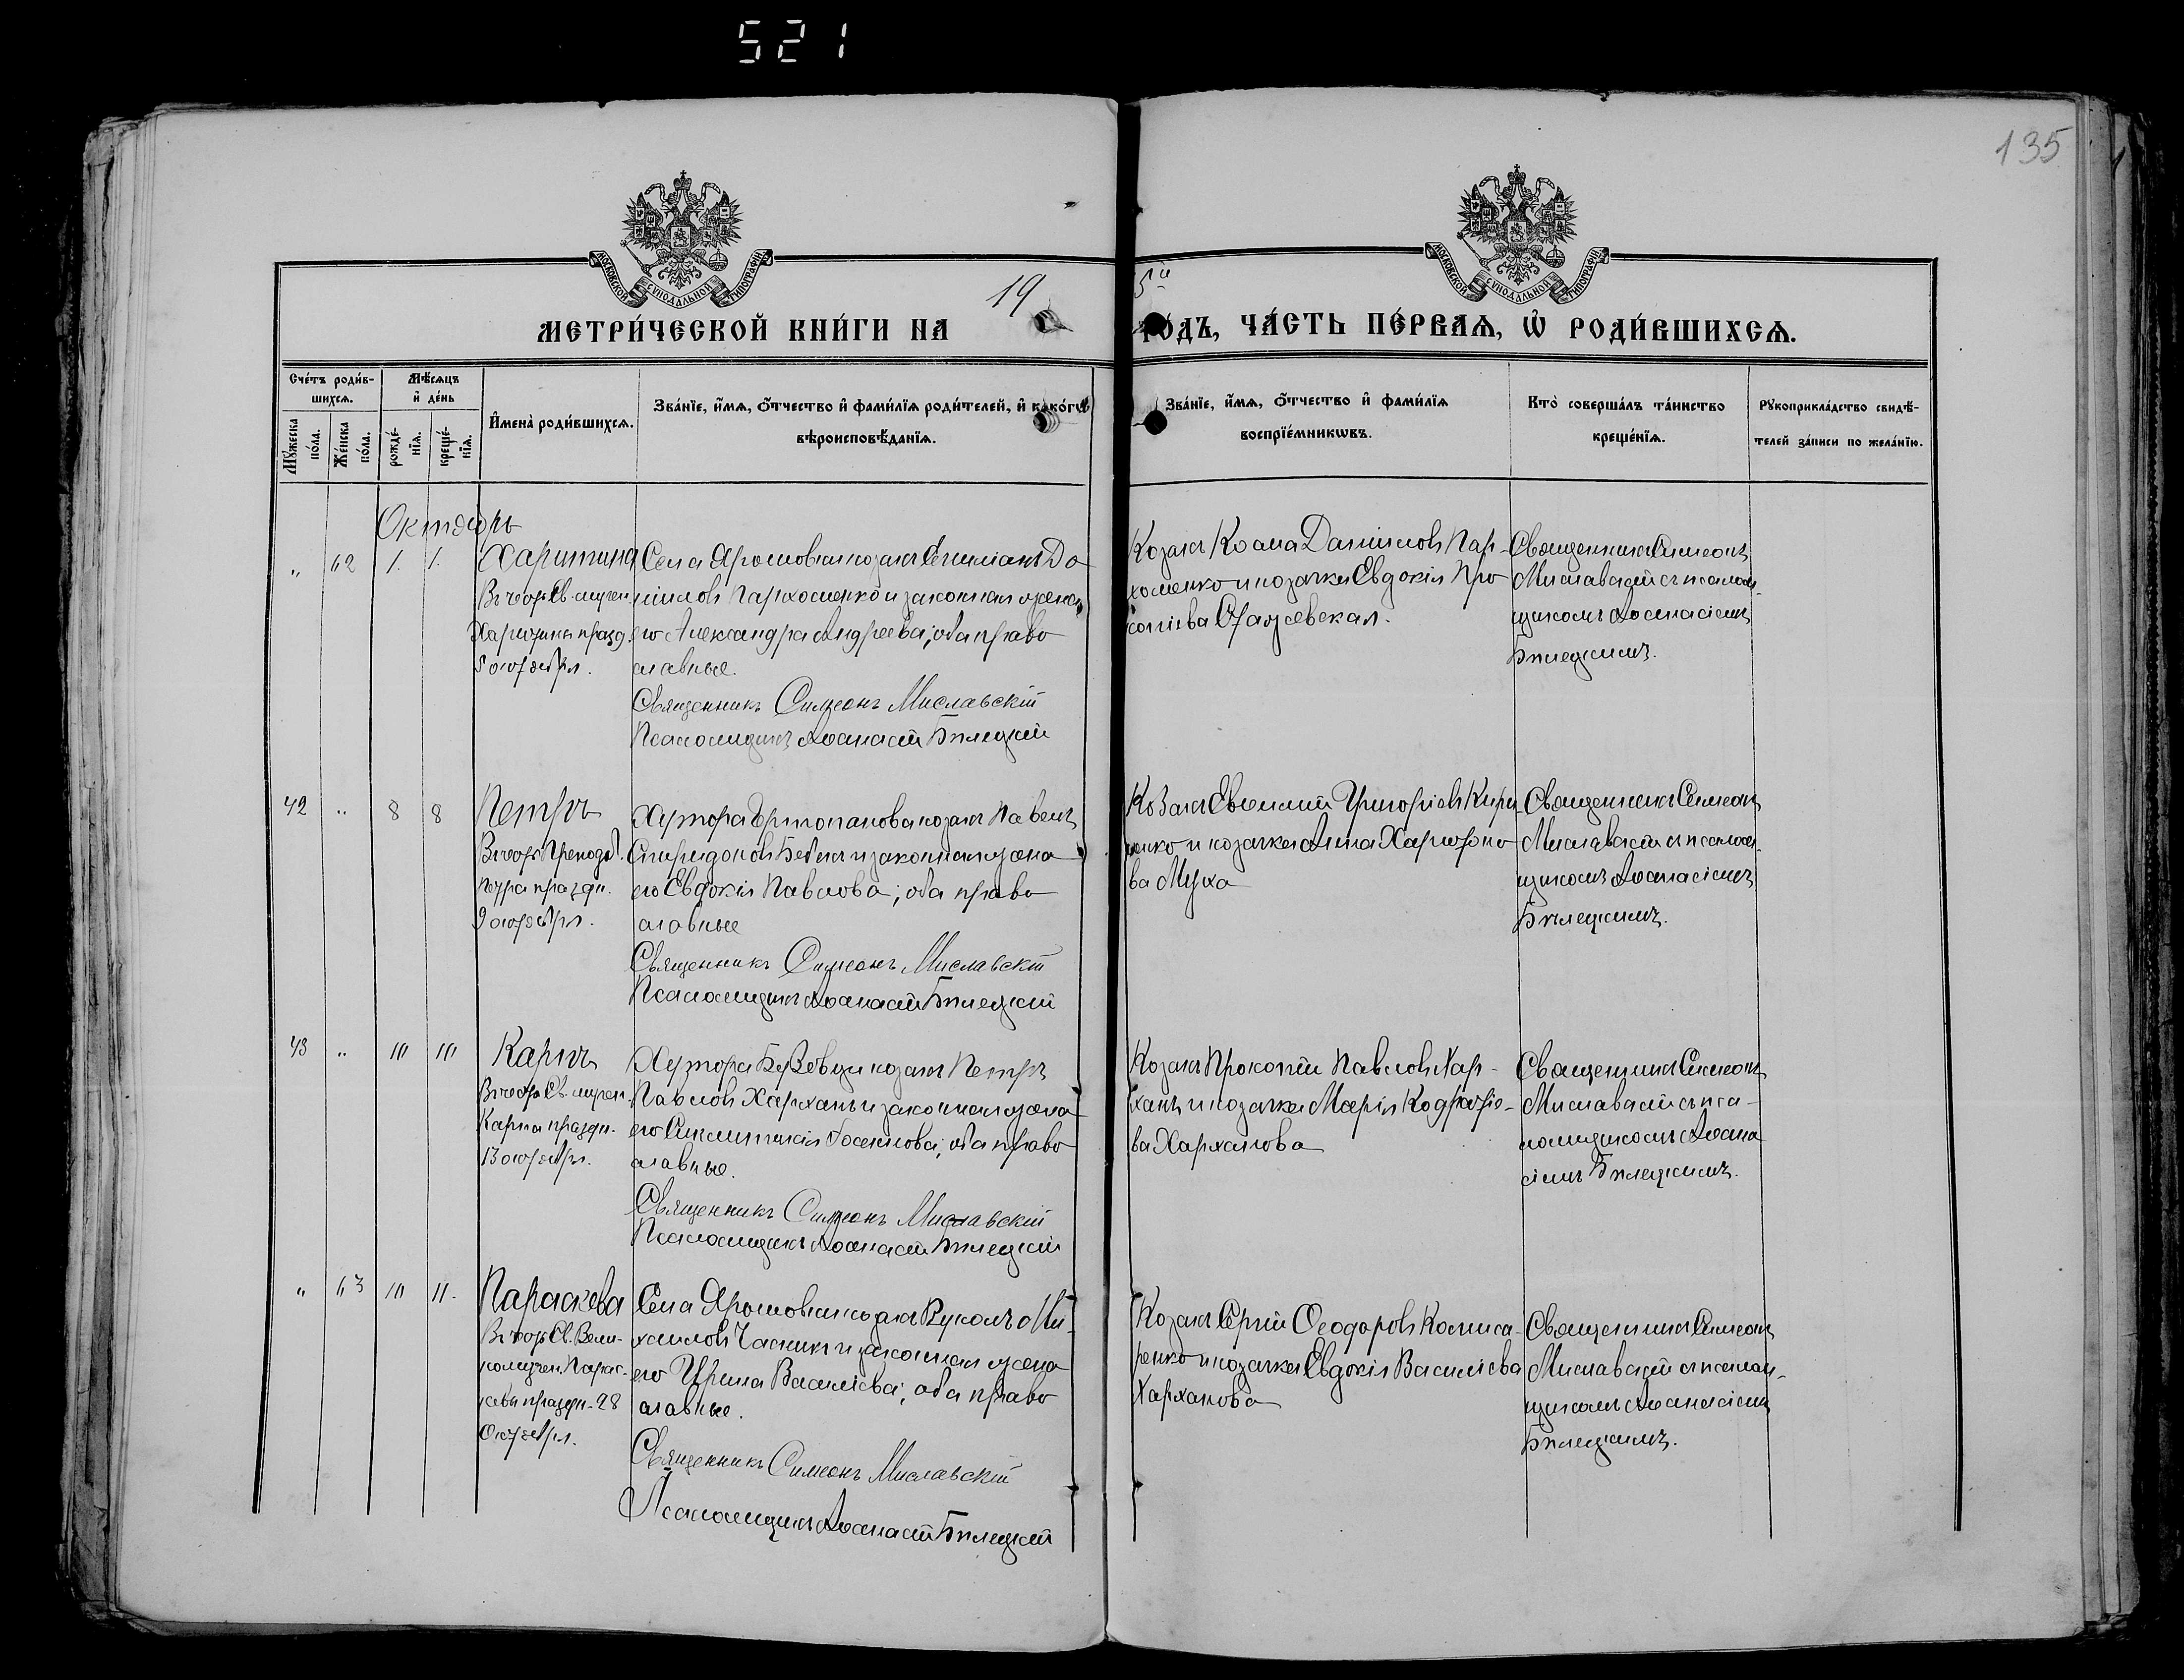 521
135
МОСКОВСКОЙ СУНОДАЛЬНОЙ ТИПОГРАФІИ
МОСКОВСКОЙ СУНОДАЛЬНОЙ ТИПОГРАФІИ
19 5й
МЕТРИ́ЧЕСКОЙ КНИ́ГИ НА ГО́ДЪ, ЧА́СТЬ ПЕ́РВАѦ, Ѡ РОДИ́ВШИХСѦ.
Сче́тъ роди́в-
шихсѧ.
Мѣ́сѧцъ
и҆ де́нь
Мꙋ́жеска
по́ла.
Же́нска
по́ла.
рожде́-
нїѧ.
креще́-
нїѧ.
И҆мена̀ роди́вшихсѧ.
Зва́нїе, и҆́мѧ, ѻ҆́тчество и҆ фами́лїѧ роди́телей, и҆ како́гѡ
вѣроисповѣ́данїѧ.
Зва́нїе, и҆́мѧ, ѻ҆́тчество и҆ фами́лїѧ
воспрїе́мникѡвъ.
Кто̀ соверша́лъ та́инство
креще́нїѧ.
Рꙋкоприкла́дство свидѣ́-
телей за́писи по жела́нїю.
Октябрь
" 62 1. 1. Харитина
Въ честь Св. мучен.
Харитины празд.
5 октября.
Села Ярошовки козакъ Да
ніиловъ Пархоменко и законная жена
его Александра Андреева; оба право
славные.
Священникъ Симеонъ Миславскій
Псаломщикъ Аѳанасій Билецкій
Козакъ Косма Даніиловъ Пар-
хоменко и козачка Евдокія Про
Священникъ Симеонъ
Миславскій съ псалом-
щикомъ Аѳанасіемъ
Билецкимъ.
42 " 8 8 Петръ
Въ честь Преподоб.
Петра праздн.
9 октября.
Хутора козакъ Павелъ
Спиридоновъ и законная жена
его Евдокія Павлова; оба право
славные
Священникъ Симеонъ Миславскій
Псаломщикъ Аѳанасій Билецкій
Козакъ Евѳимій Григоріевъ Кири
ченко и козачка Анна Харитоно
ва Муха
Священникъ Симеонъ
Миславскій съ псалом-
щикомъ Аѳанасіемъ
Билецкимъ.
43 " 10 10 Карпъ
Въ честь Св. мучен.
Карпа праздн.
13 октября.
Хутора козакъ Петръ
Павловъ Харханъ и законная жена
его оба право
славные.
Священникъ Симеонъ Миславскій
Псаломщикъ Аѳанасій Билецкій
Козакъ Прокопій Павловъ Хар-
ханъ и козачка Марія Кодратіе-
ва Харханова
Священникъ Симеонъ
Миславскій съ пса-
ломщикомъ Аѳана
сіемъ Билецкимъ.
" 63 10 11. Параскева
Въ честь Св. Вели-
комучен. Парас-
кевы праздн. 28
Октября.
Села Ярошовки козакъ Ми-
хаиловъ Часникъ и законная жена
его Ирина Василіева; оба право
славные.
Священникъ Симеонъ Миславскій
Псаломщикъ Аѳанасій Билецкій
Козакъ Сергій Ѳеодоровъ Комиса-
ренко и козачка Евдокія Василіева
Харханова
Священникъ Симеонъ
Миславскій съ псалом-
щикомъ Аѳанасіемъ
Билецкимъ.